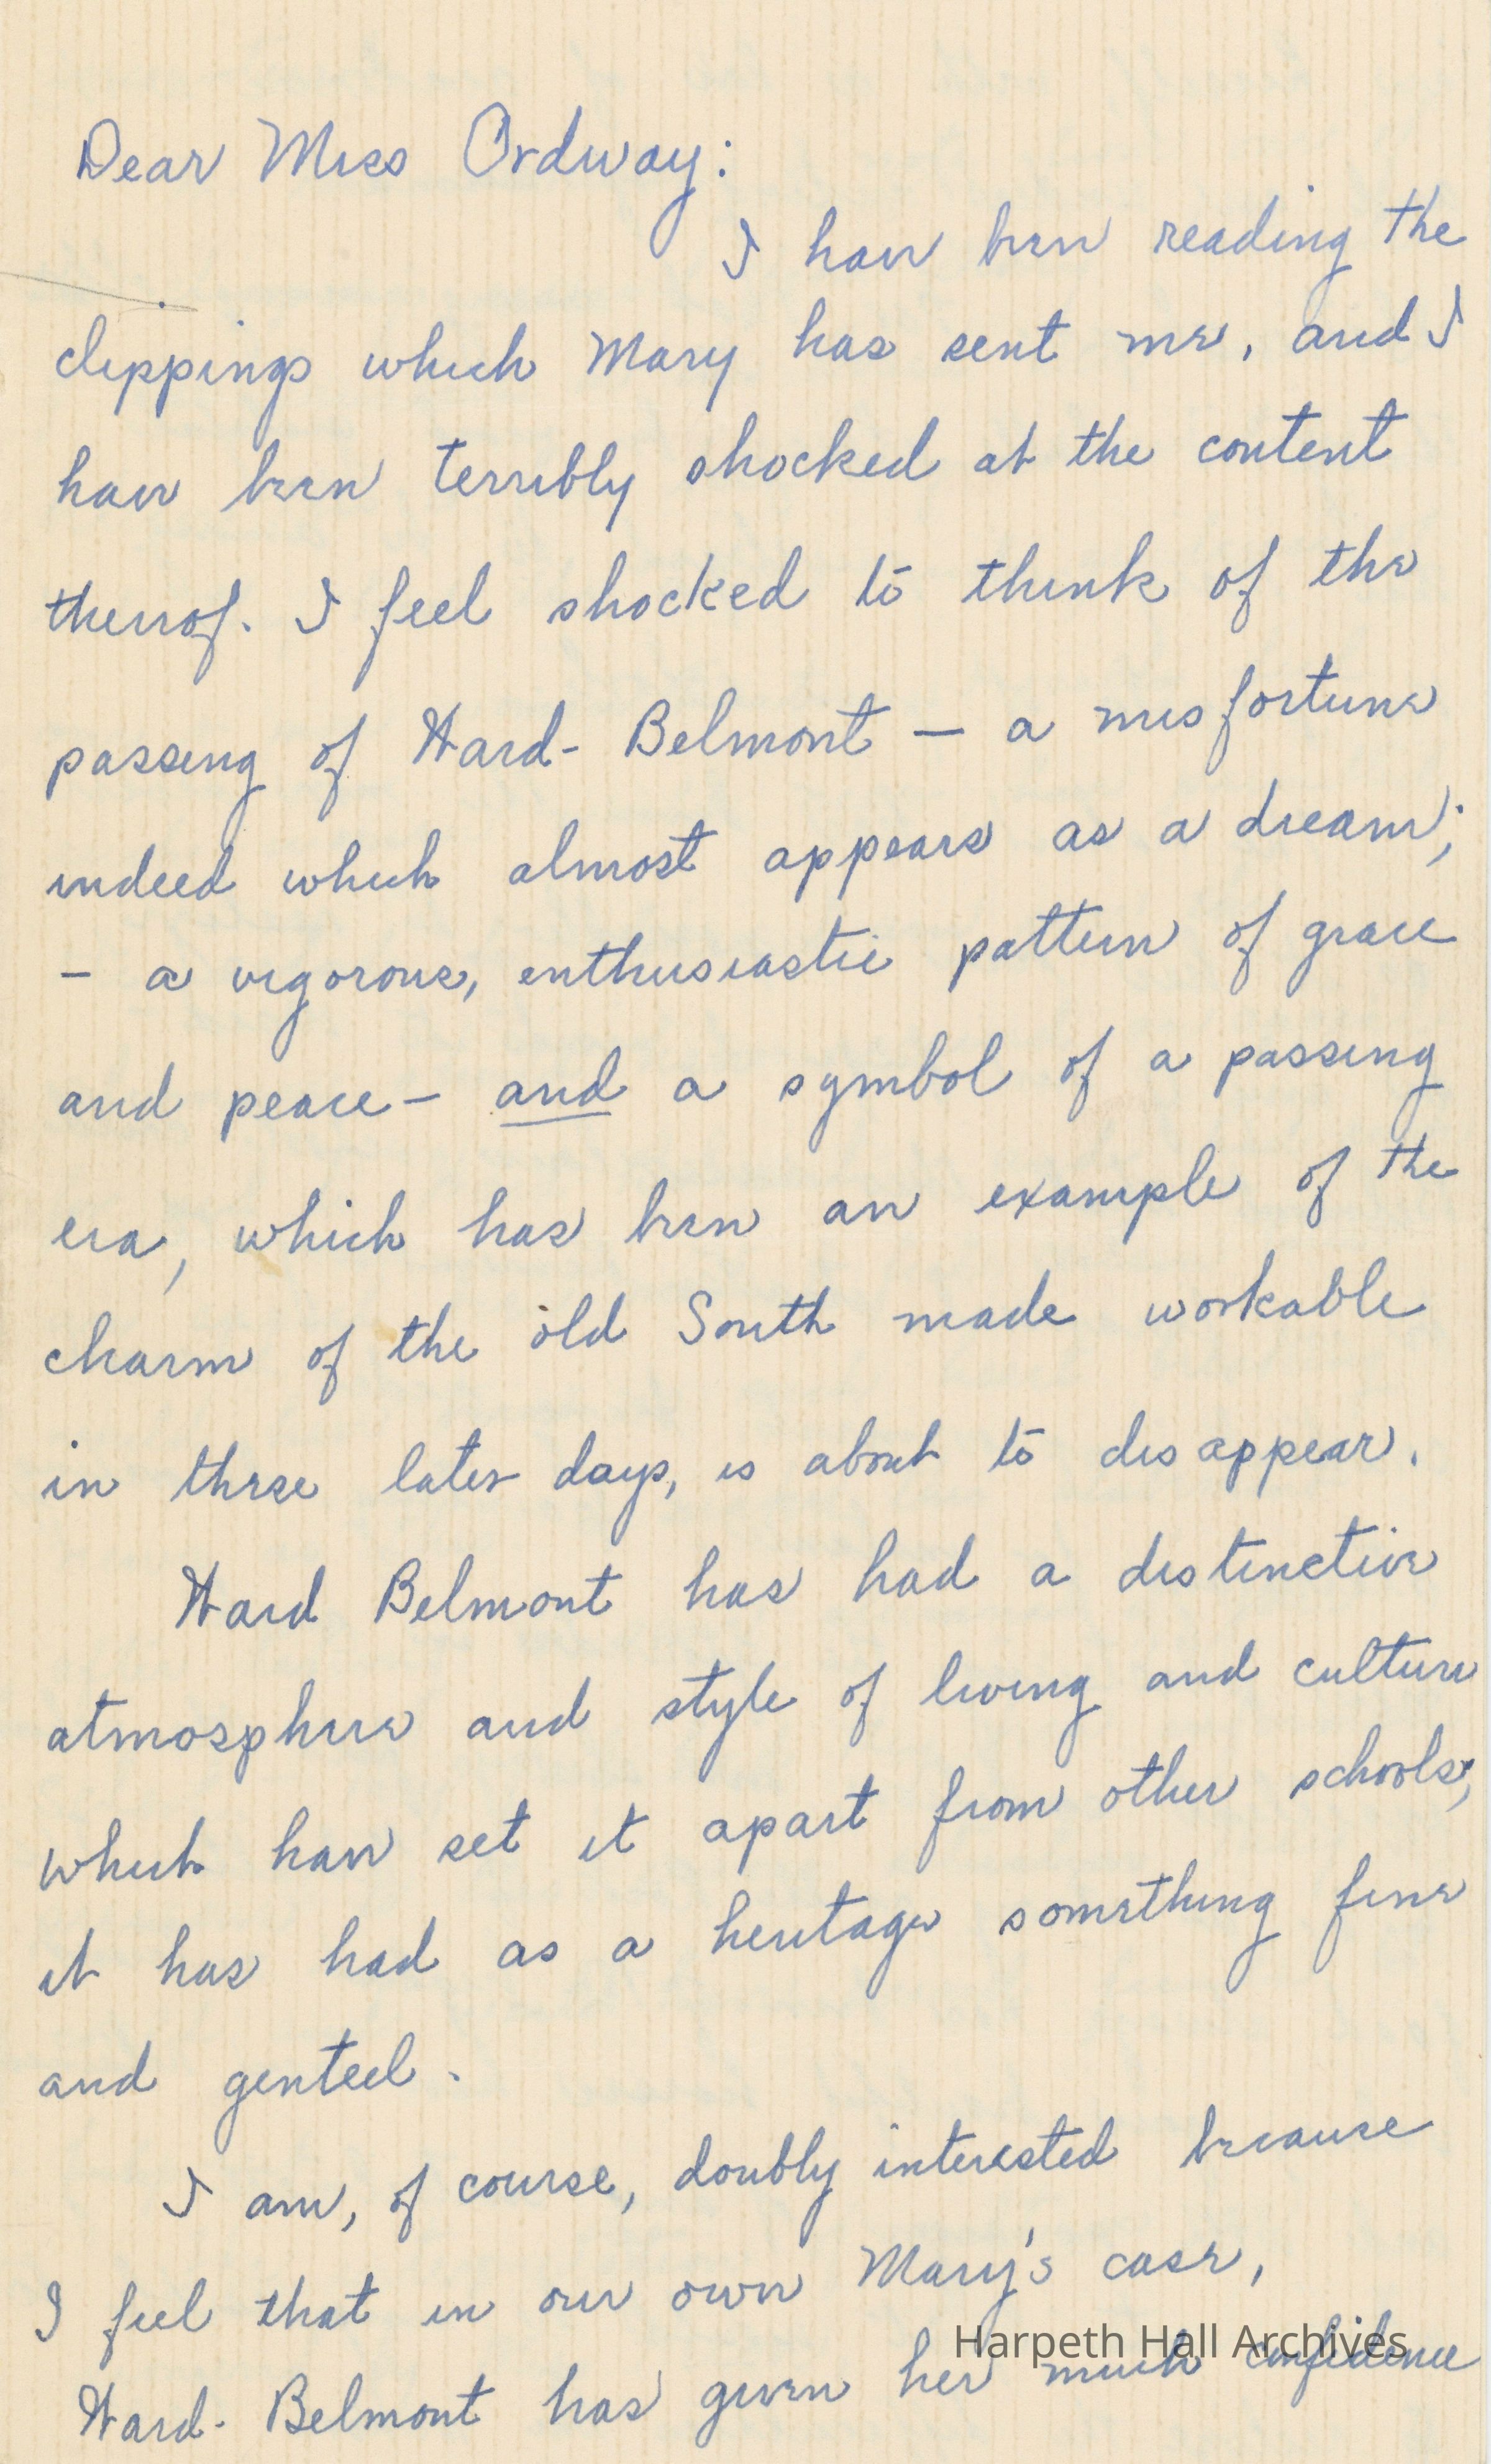 Dear Miss Ordway:
I have been reading the
clippings which Mary has sent me, and I
have been terribly shocked at the content
thereof. I feel shocked to think of the
passing of Ward-Belmont — a misfortune
indeed which almost appears as a dream;
— a vigorous, enthusiastic pattern of grace
and peace — and a symbol of a passing
era, which has been an example of the
charm of the old South made workable
in these later days, is about to disappear.
Ward Belmont has had a distinctive
atmosphere and style of living and culture
which have set it apart from other schools;
it has had as a heritage something fine
and genteel.
I am, of course, doubly interested because
I feel that in our own Mary's case,
Ward-Belmont has given her much confidence
Harpeth Hall Archives